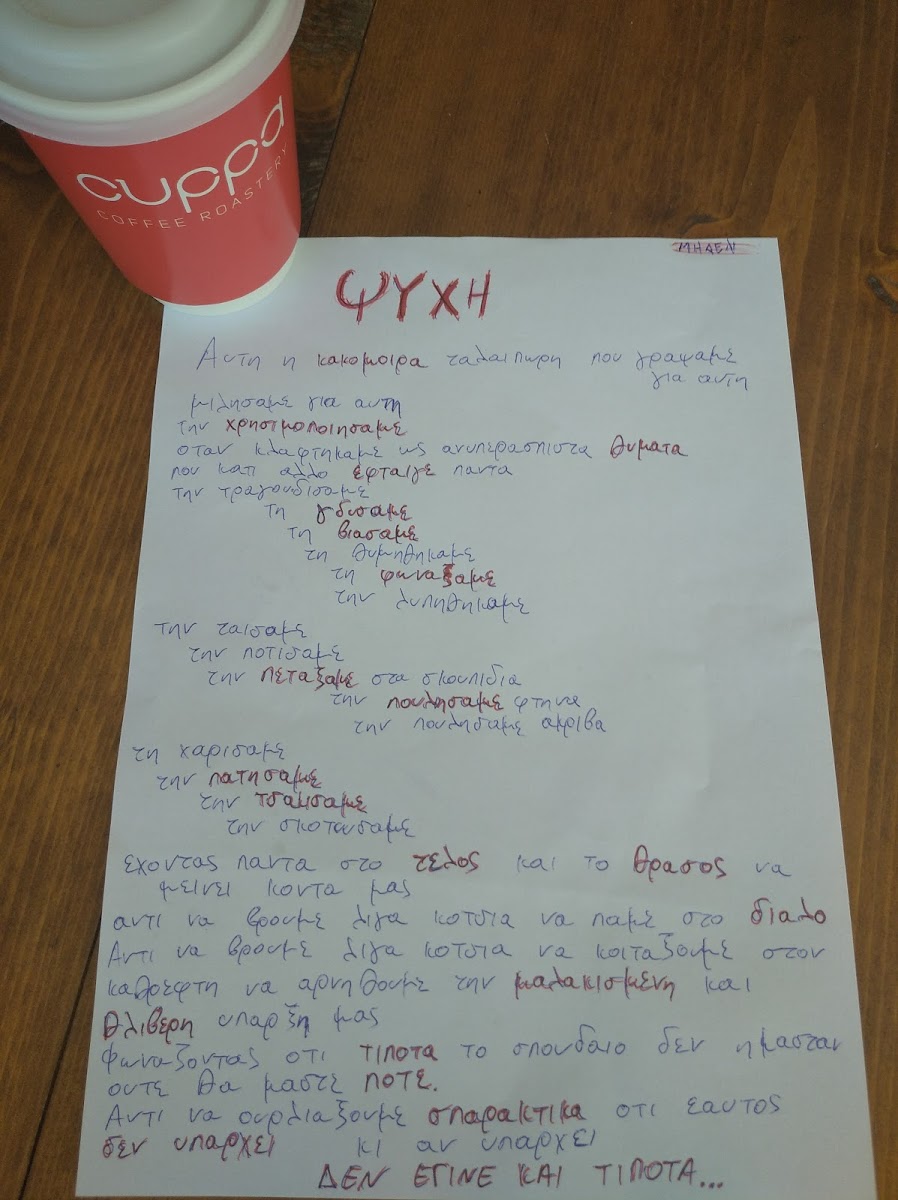 cuppa
COFFEE ROASTERY
ΜΗΔΕΝ
ΨΥΧΗ
Αυτη η κακομοιρα ταλαιπωρη που γραψαμε
για αυτη
μιλησαμε για αυτη
την χρησιμοποιησαμε
οταν κλαφτηκαμε ως ανυπερασπιστα θυματα
που κατι αλλο εφταιγε παντα
την τραγουδισαμε
τη γδυσαμε
τη βιασαμε
τη θυμηθηκαμε
τη φωναξαμε
την λυπηθηκαμε
την ταισαμε
την ποτισαμε
την πεταξαμε στα σκουπιδια
την πουλησαμε φτηνα
την πουλησαμε ακριβα
τη χαρισαμε
την πατησαμε
την τσακισαμε
την σκοτωσαμε
εχοντας παντα στο τελος και το θρασος να
μεινει κοντα μας
αντι να βρουμε λιγα κοτσια να παμε στο διαλο
Αντι να βρουμε λιγα κοτσια να κοιταξουμε στον
καθρεφτη να αρνηθουμε την μαλακισμενη και
θλιβερη υπαρξη μας
φωναζοντας οτι τιποτα το σπουδαιο δεν ημασταν
ουτε θα μαστε ποτε.
Αντι να ουρλιαξουμε σπαρακτικα οτι εαυτος
δεν υπαρχει κι αν υπαρχει
ΔΕΝ ΕΓΙΝΕ ΚΑΙ ΤΙΠΟΤΑ...